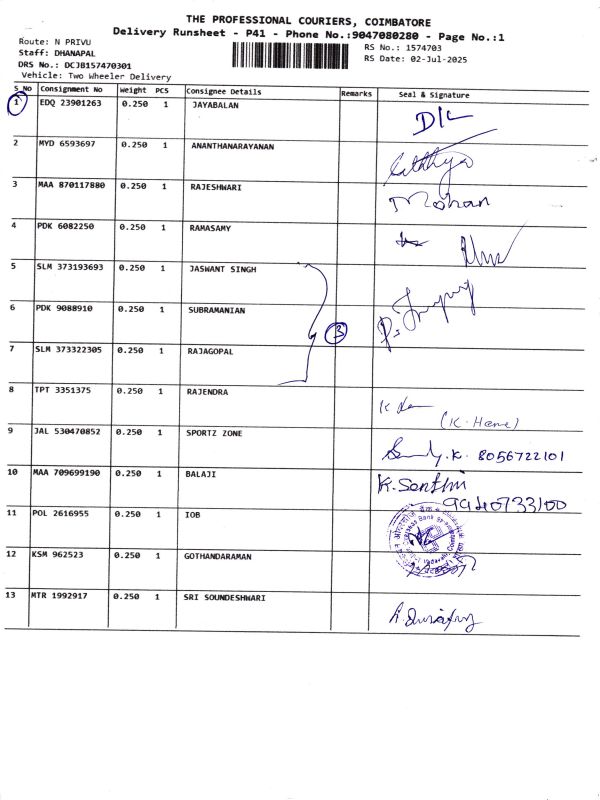 THE PROFESSIONAL COURIERS, COIMBATORE
Delivery Runsheet - P41 - Phone No.:9047080280 - Page No.:1
Route: N PRIVU
RS No.: 1574703
Staff: DHANAPAL
RS Date: 02-Jul-2025
DRS No.: DCJB157470301
Vehicle: Two Wheeler Delivery
S No Consignment No Weight PCS Consignee Details Remarks Seal & Signature
1 EDQ 23901263 0.250 1 JAYABALAN D/L
2 MYD 6593697 0.250 1 ANANTHANARAYANAN
3 MAA 870117880 0.250 1 RAJESHWARI Mohan
4 PDK 6082250 0.250 1 RAMASAMY
5 SLM 373193693 0.250 1 JASWANT SINGH
6 PDK 9088910 0.250 1 SUBRAMANIAN
3
7 SLM 373322305 0.250 1 RAJAGOPAL
8 TPT 3351375 0.250 1 RAJENDRA
9 JAL 530470852 0.250 1 SPORTZ ZONE 8056722101
10 MAA 709699190 0.250 1 BALAJI K. Senthil
9940733100
11 POL 2616955 0.250 1 IOB
12 KSM 962523 0.250 1 GOTHANDARAMAN
13 MTR 1992917 0.250 1 SRI SOUNDESHWARI